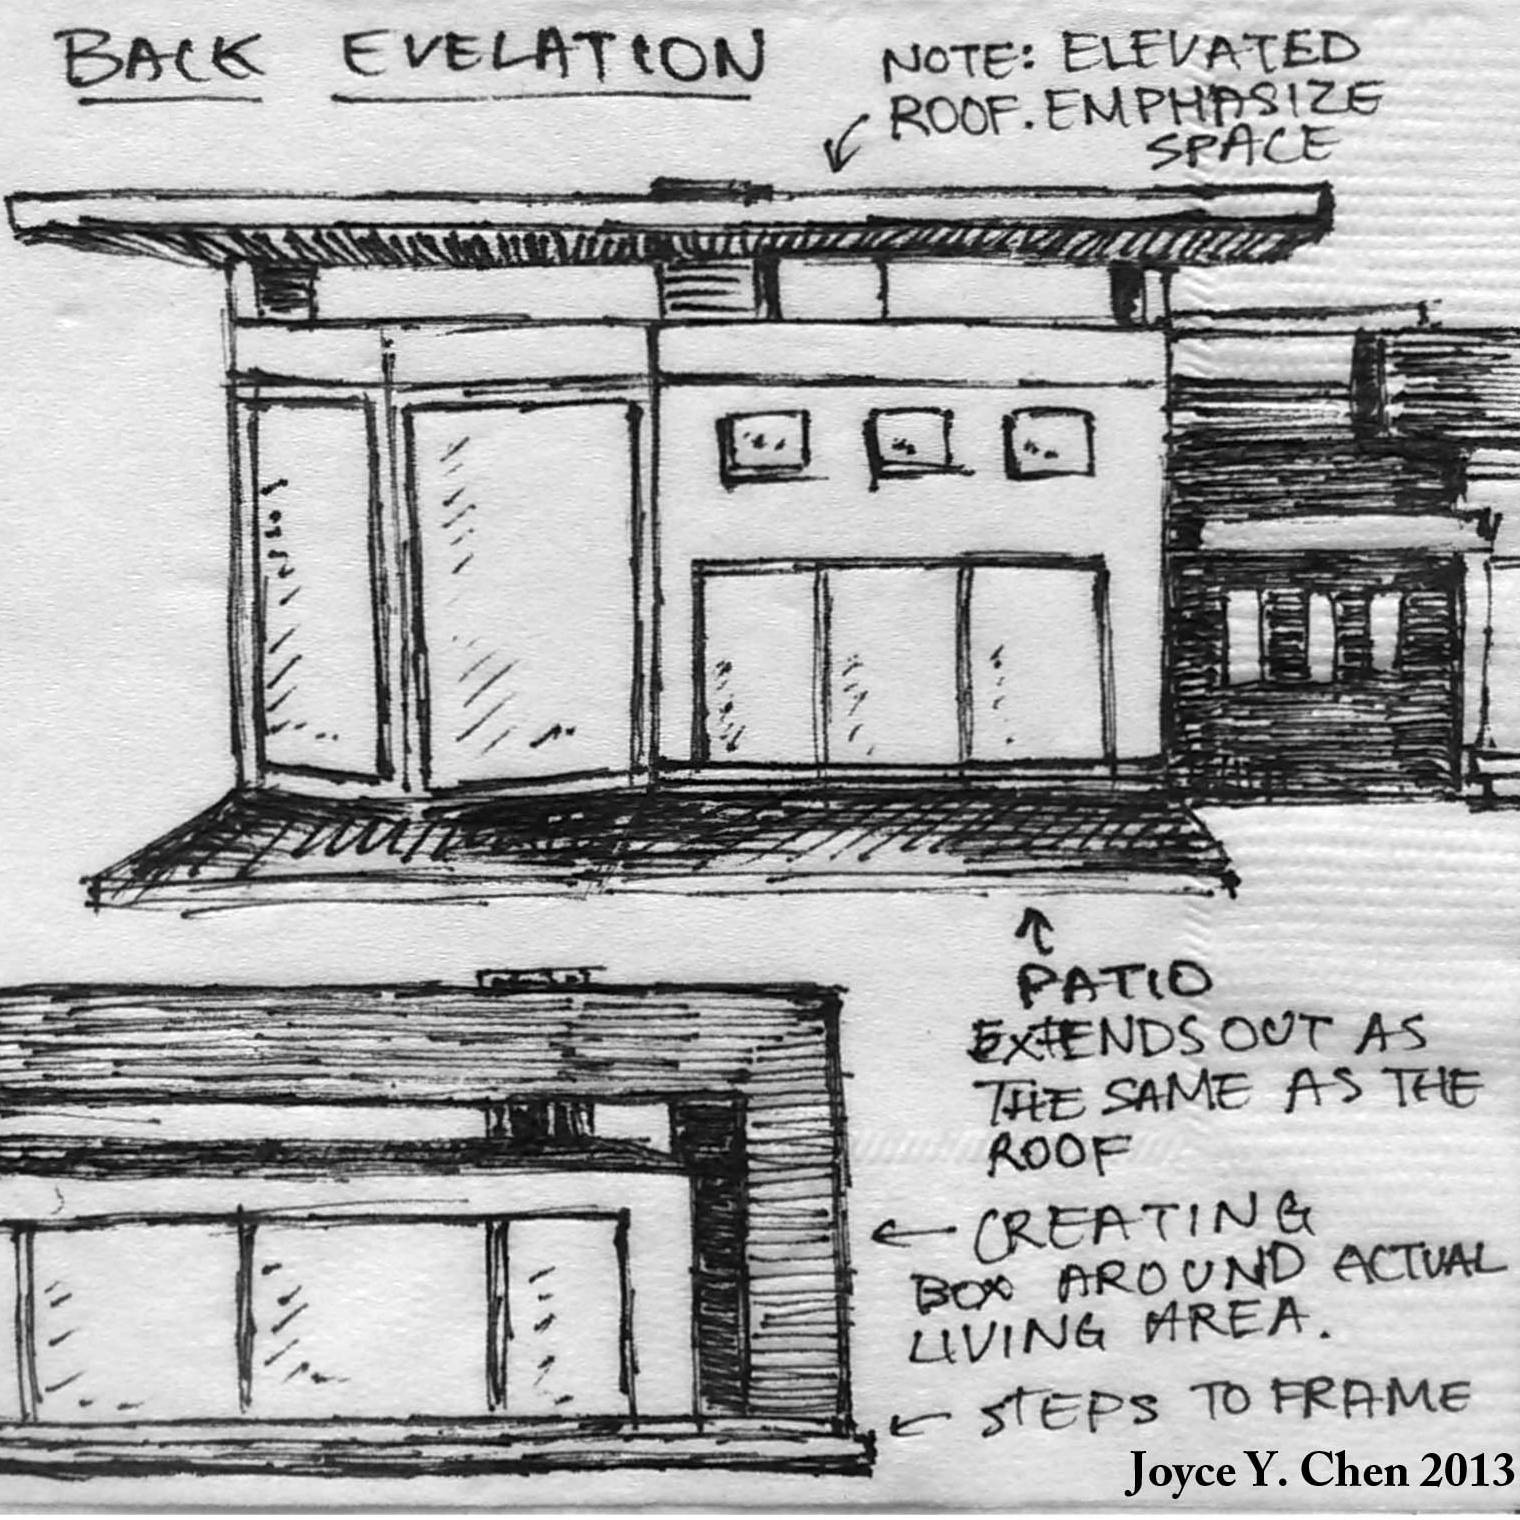 BACK EVELATION
NOTE: ELEVATED
ROOF. EMPHASIZE
SPACE
PATIO
EXTENDS OUT AS
THE SAME AS THE
ROOF
CREATING
BOX AROUND ACTUAL
LIVING AREA.
STEPS TO FRAME
Joyce Y. Chen 2013